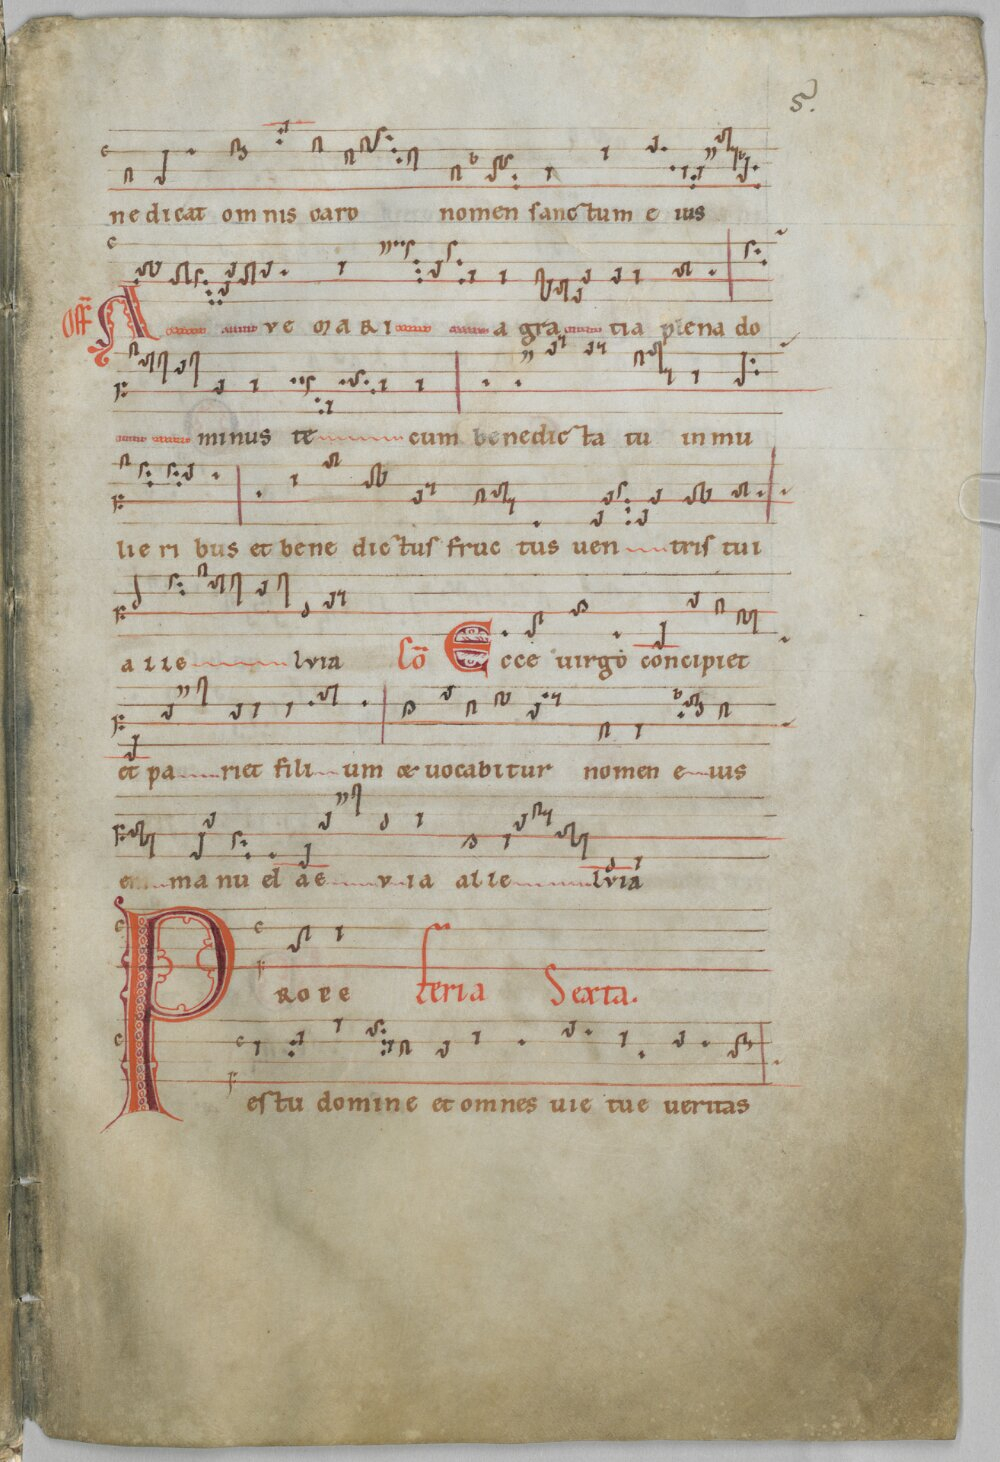 5.
nedicat omnis caro nomen sanctum e ius
Off AVE MARI a gra tia plena do
minus te cum benedicta tu in mu
lie ri bus et bene dictus fruc tus uen tris tui
alle lvia Cō Ecce uirgo concipiet
et pa riet fili um & uocabitur nomen e ius
em ma nu el ae v ia alle lvia
PROPE feria Sexta.
estu domine et omnes uie tue ueritas